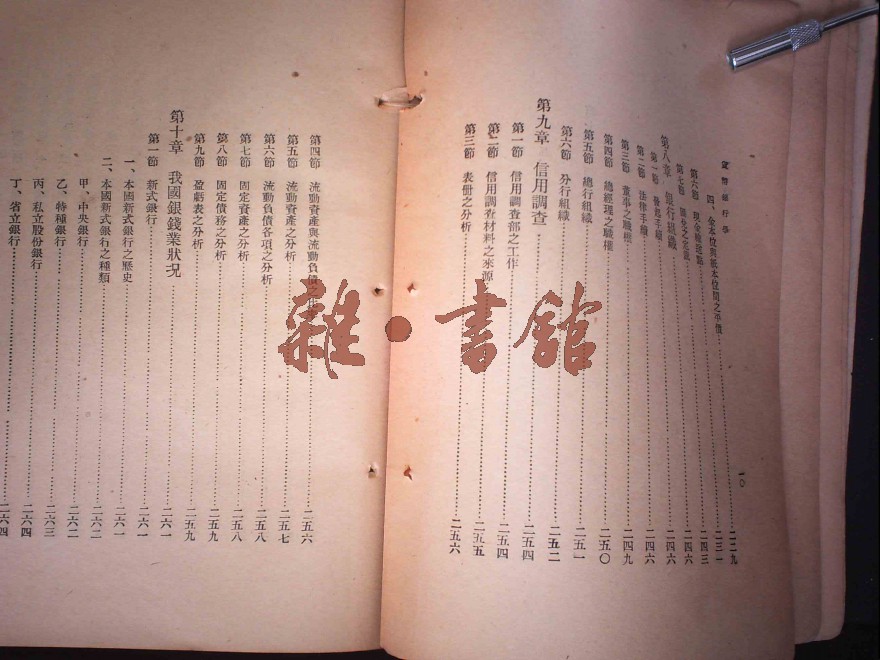 貨幣銀行學
一〇
四、金本位與紙本位間之平價……二二九
第六節 現金輸送點……二三一
第七節……二四三
第八章 銀行組織……二四六
第一節 發起手續……二四六
第二節 法律手續……二四六
第三節 董事之職權……二四九
第四節 總經理之職權……二五〇
第五節 總行組織……二五一
第六節 分行組織……二五二
第九章 信用調查……二五四
第一節 信用調查部之工作……二五四
第二節 信用調查材料之來源……二五五
第三節 表冊之分析……二五六
第四節 流動資產與流動負債之……二五六
第五節 流動資產之分析……二五七
第六節 流動負債各項之分析……二五八
第七節 固定資產之分析……二五八
第八節 固定債務之分析……二五九
第九節 盈虧表之分析……二五九
第十章 我國銀錢業狀況……二六一
第一節 新式銀行……二六一
一、本國新式銀行之歷史……二六一
二、本國新式銀行之種類……二六二
甲、中央銀行……二六二
乙、特種銀行……二六三
丙、私立股份銀行……二六四
丁、省立銀行……二六四
雜·書館